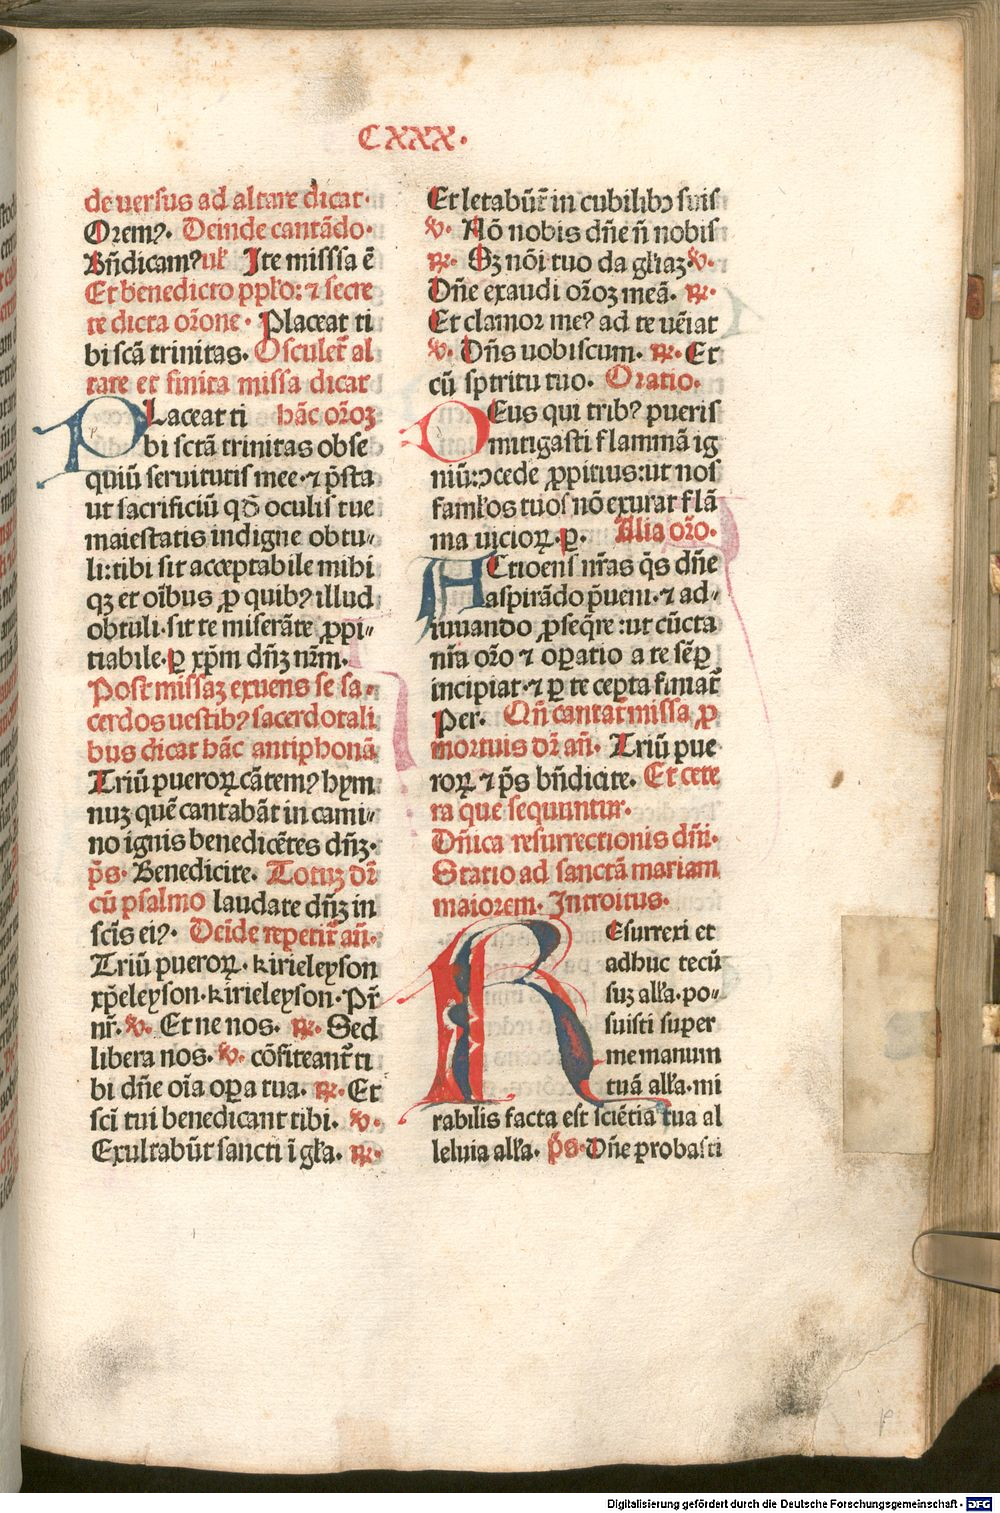 CXXX.
de uersus ad altare dicat.
Oremꝰ. Deinde cantãdo.
Bñdicamꝰ ul̃ Ite missia ẽ
Et benedicto pplo: ⁊ secre
te dicta or̃one. Placeat ti
bi scã trinitas. Osculet̃ al
tare et finita missa dicat
PLaceat ti hãc or̃oꝫ
bi sctã trinitas obse
quiũ seruitutis mee. ⁊ p̃sta
ut sacrificiũ qđ oculis tue
maiestatis indigne obtu⸗
li: tibi sit acceptabile mihi
qꝫ et oĩbus ꝓ quibꝰ illud
obtuli. sit te miserãte ꝓpi⸗
tiabile. ꝑ xp̃m dñꝫ nr̃m.
Post missaꝫ exuens se sa⸗
cerdos uestibꝰ sacerdotali
bus dicat hãc antiphonã
Triũ pueroꝝ cãtemꝰ hym
nuꝫ quẽ cantabãt in cami⸗
no ignis benedicẽtes dñꝫ.
p̃s. Benedicite. Totuꝫ dr̃
cũ psalmo laudate dñꝫ in
scĩs eiꝰ. Deĩde repetit̃ añ.
Triũ pueroꝝ. kirieleyson
xp̃eleyson. kirieleyson. Pr̃
nr̃. ℣. Et ne nos. ℟. Sed
libera nos. ℣. cõfiteant̃ ti
bi dñe oĩa oꝑa tua. ℟. Et
scĩ tui benedicant tibi. ℣.
Exultabũt sancti ĩ gl̃a. ℟.
Et letabũt̃ in cubilibꝰ suis
℣. Nõ nobis dñe ñ nobis
℟. Sꝫ nõi tuo da gl̃iaꝫ. ℣.
Dñe exaudi or̃oꝫ meã. ℟.
Et clamor meꝰ ad te uẽiat
℣. Dñs uobiscum. ℟. Et
cũ spiritu tuo. Oratio.
DEus qui tribꝰ pueris
mitigasti flammã ig
niũ: ↄcede ꝓpitius: ut nos
famłos tuos nõ exurat flã
ma uicioꝝ. ꝑ. Alia or̃o.
ACtioens nr̃as q̃s dñe
aspirãdo p̃ueni. ⁊ ad⸗
iuuando ꝓseq̃re: ut cũcta
nr̃a or̃o ⁊ oꝑatio a te sẽꝑ
incipiat. ⁊ ꝑ te cepta finiat̃
Per. Qñ cantat̃ missa ꝓ
mortuis dr̃ añ. Triũ pue
roꝝ ⁊ p̃s bñdicite. Et cete
ra que sequuntur.
Dñica resurrectionis dñi.
Statio ad sanctã mariam
maiorem. Introitus.
REsurrexi et
adhuc tecũ
suꝫ all̃a. po⸗
suisti super
me manum
tuã all̃a. mi
rabilis facta est sciẽtia tua al
leluia all̃a. p̃s. Dñe probasti
Digitalisierung gefördert durch die Deutsche Forschungsgemeinschaft - DFG